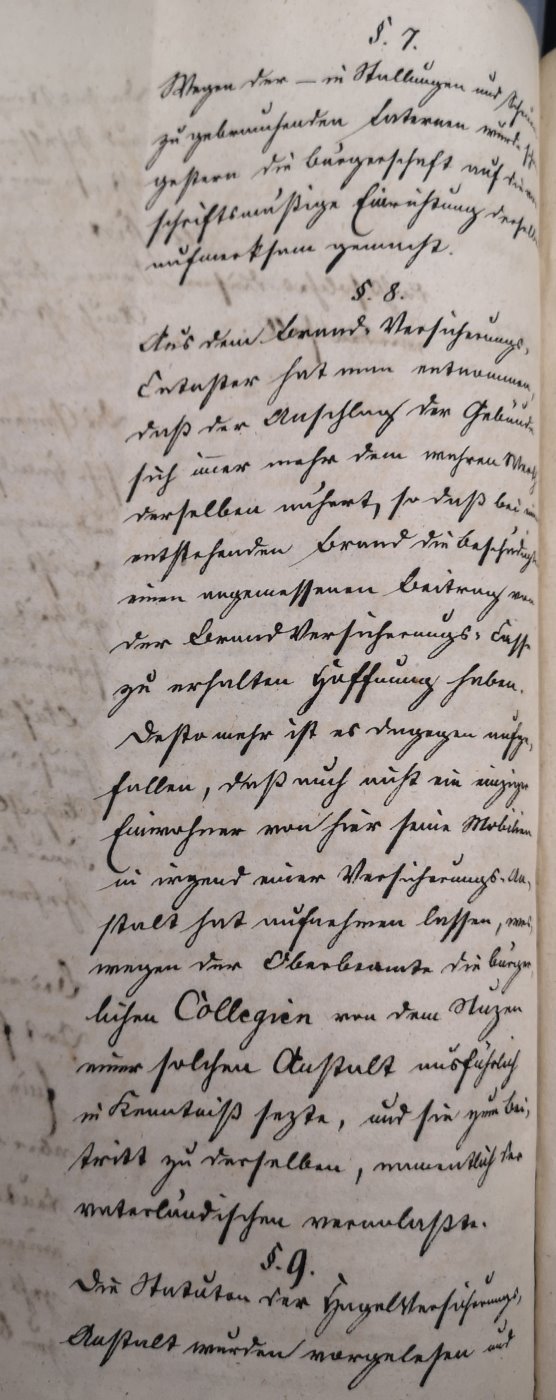 §. 7.
Wegen der – in Stallungen und
zu gebrauchenden Laternen wurde
gestern die Bürgerschaft auf die
schriftsmäßige Einrichtung
aufmerksam gemacht.
§. 8.
Aus dem Brand-Versicherungs-
Cataster hat man entnommen,
daß der Anschlag der Gebäude
sich immer mehr dem wahren Werth
derselben nähert, so daß bei
entstehenden Brand die
einen angemessenen Beitrag von
der BrandVersicherungs-Casse
zu erhalten Hoffnung haben.
Desto mehr ist es dagegen aufge-
fallen, daß auch nicht ein einziger
Einwohner von hier seine Mobilien
in irgend einer Versicherungs-An-
stalt hat aufnehmen lassen, wes-
wegen der Oberbeamte die bürger-
lichen Collegien von dem Nuzen
einer solchen Anstalt ausführlich
in Kenntniß sezte, und sie zum Bei-
tritt zu derselben, namentlich der
vaterländischen veranlaßte.
§. 9.
Die Statuten der HagelVersicherungs-
Anstalt wurden vorgelesen und